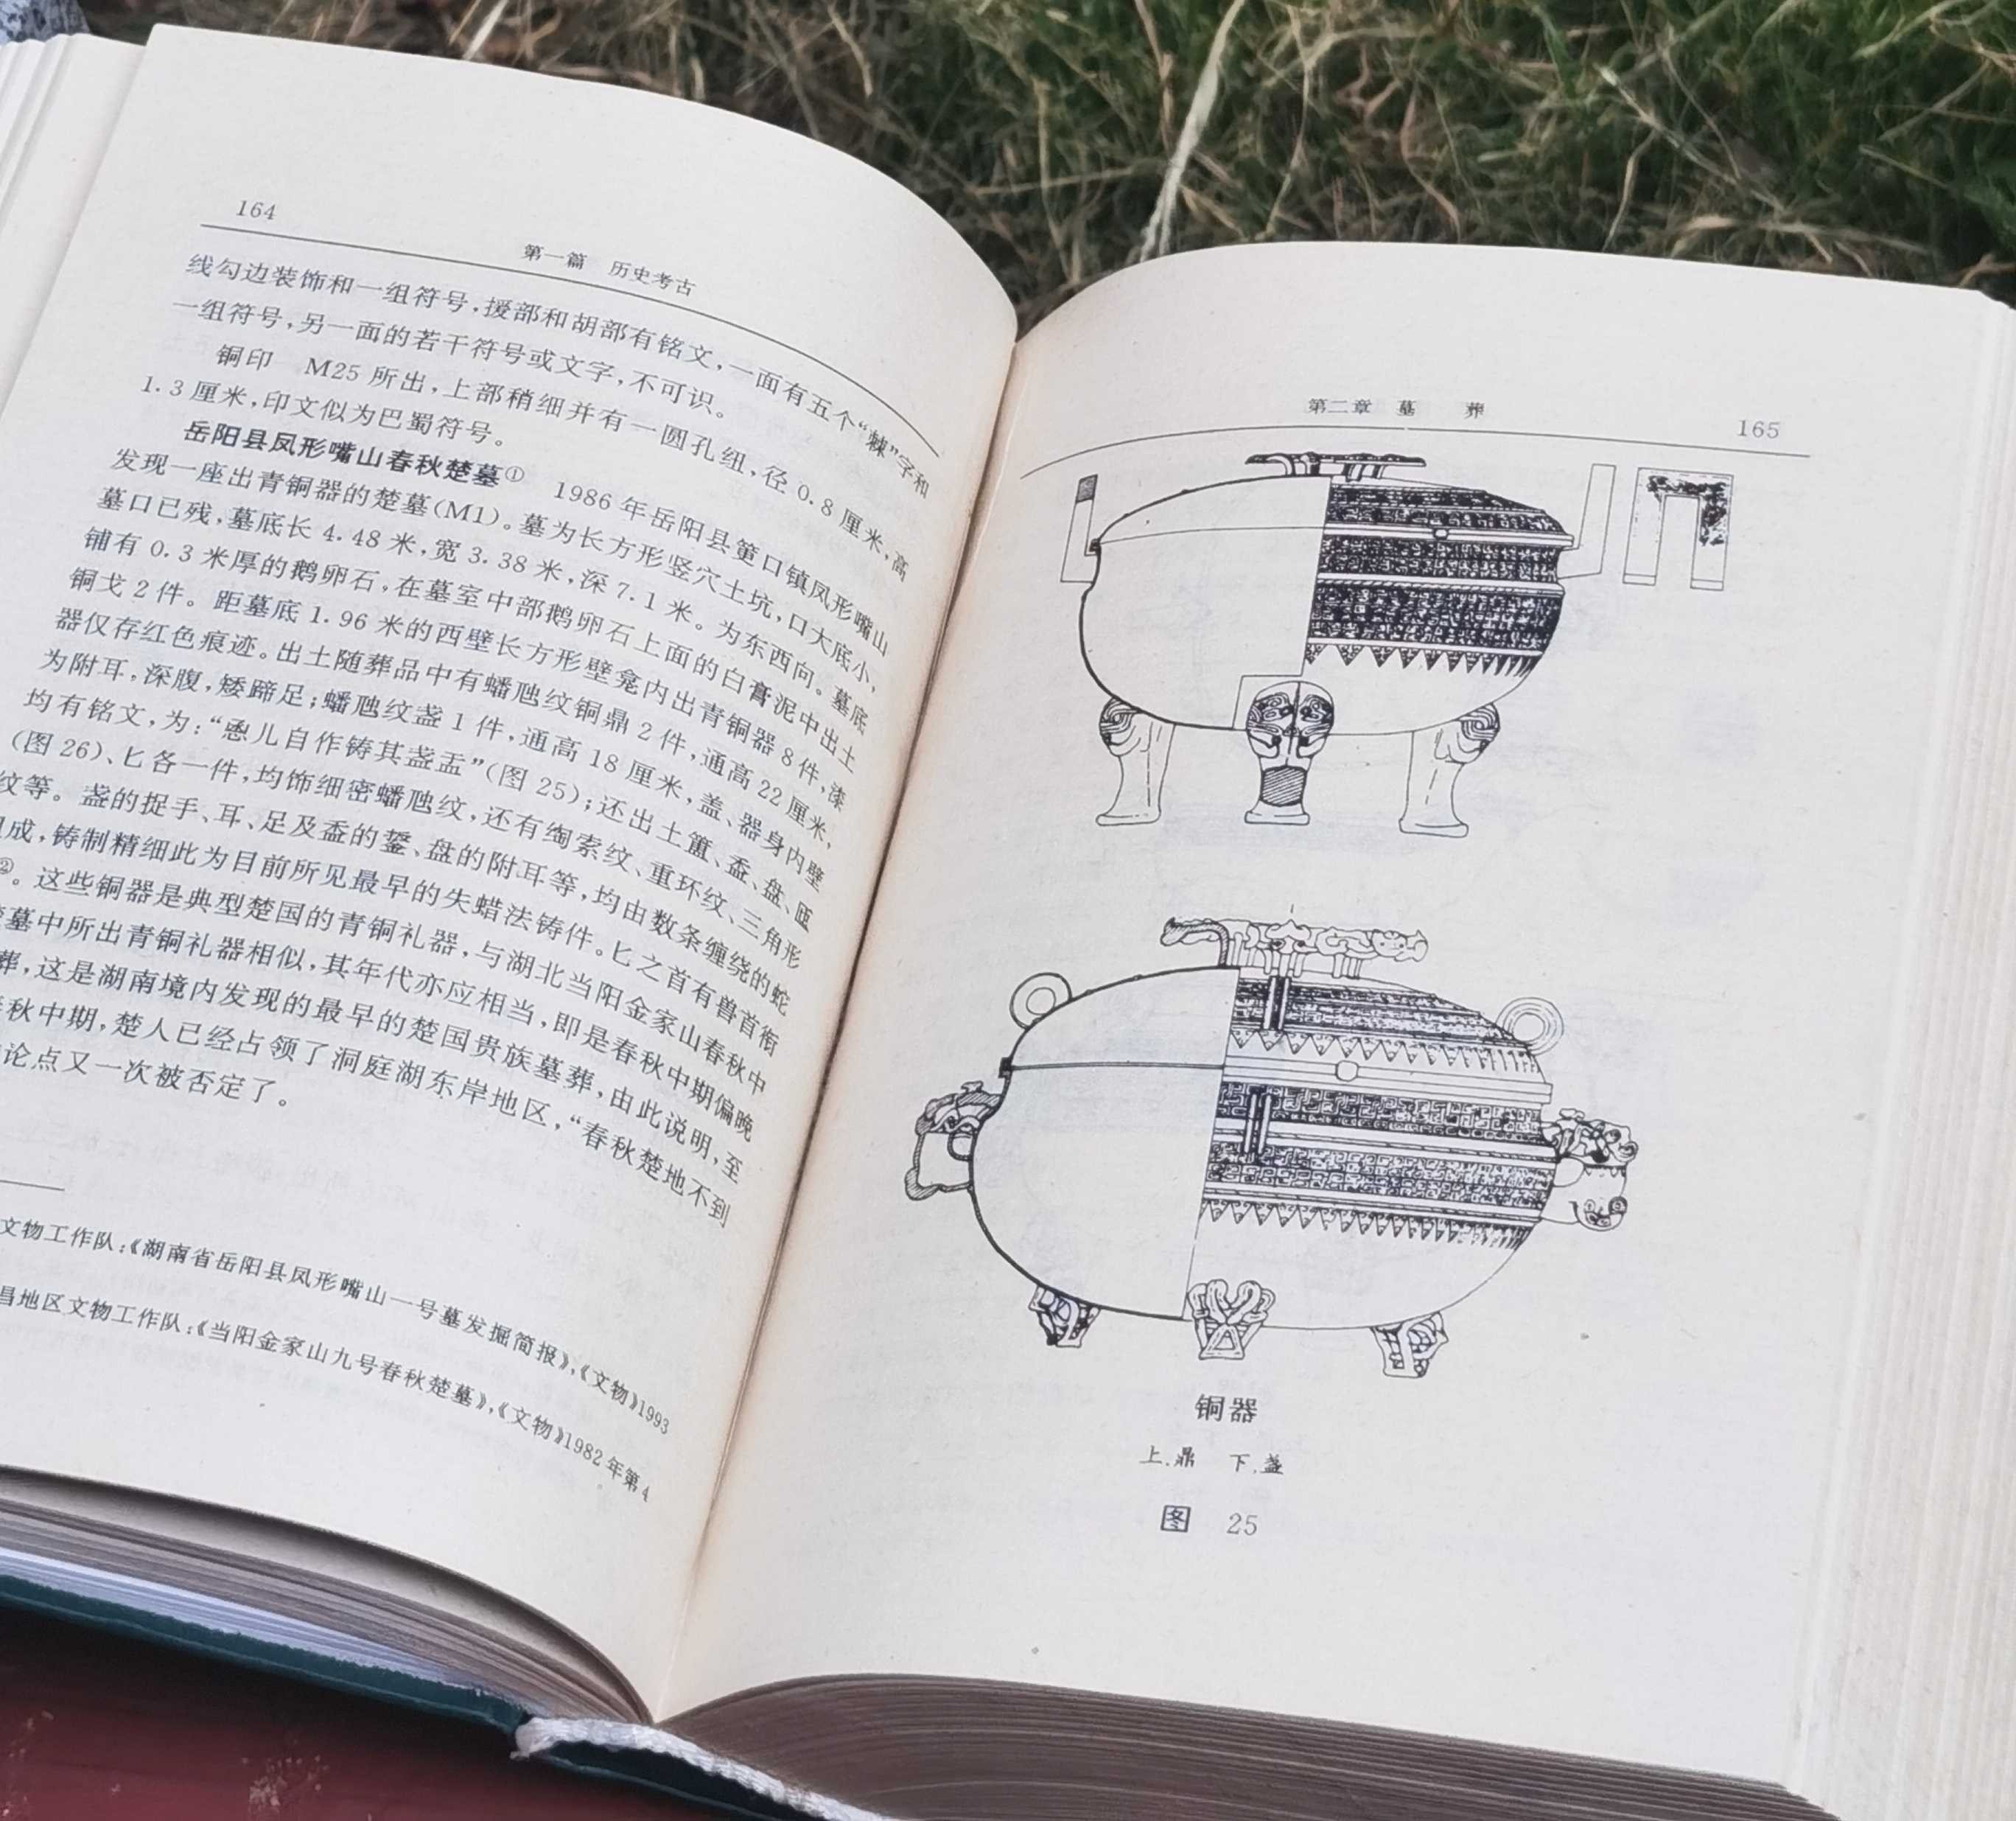 164
第一篇 历史考古
线勾边装饰和一组符号,援部和胡部有铭文,一面有五个“棘”字和
一组符号,另一面的若干符号或文字,不可识。
铜印 M25 所出,上部稍细并有一圆孔纽,径 0.8 厘米,高
1.3 厘米,印文似为巴蜀符号。
岳阳县凤形嘴山春秋楚墓① 1986 年岳阳县筻口镇凤形嘴山
发现一座出青铜器的楚墓(M1)。墓为长方形竖穴土坑,口大底小,
墓口已残,墓底长 4.48 米,宽 3.38 米,深 7.1 米。为东西向。墓底
铺有 0.3 米厚的鹅卵石,在墓室中部鹅卵石上面的白膏泥中出土
铜戈 2 件。距墓底 1.96 米的西壁长方形壁龛内出青铜器 8 件,漆
器仅存红色痕迹。出土随葬品中有蟠虺纹铜鼎 2 件,通高 22 厘米,
为附耳,深腹,矮蹄足;蟠虺纹盏 1 件,通高 18 厘米,盖、器身内壁
均有铭文,为:“儿自作铸其盏盂”(图 25);还出土簠、盉、盘、匜
(图 26)、匕各一件,均饰细密蟠虺纹,还有绹索纹、重环纹、三角形
纹等。盏的捉手、耳、足及盉的鋬、盘的附耳等,均由数条缠绕的蛇
成,铸制精细此为目前所见最早的失蜡法铸件。匕之首有兽首衔
②。这些铜器是典型楚国的青铜礼器,与湖北当阳金家山春秋中
墓中所出青铜礼器相似,其年代亦应相当,即是春秋中期偏晚
葬,这是湖南境内发现的最早的楚国贵族墓葬,由此说明,至
秋中期,楚人已经占领了洞庭湖东岸地区,“春秋楚地不到
论点又一次被否定了。
文物工作队:《湖南省岳阳县凤形嘴山一号墓发掘简报》,《文物》1993
昌地区文物工作队:《当阳金家山九号春秋楚墓》,《文物》1982 年第 4
第二章 墓 葬
165
铜器
上.鼎 下.盏
图 25